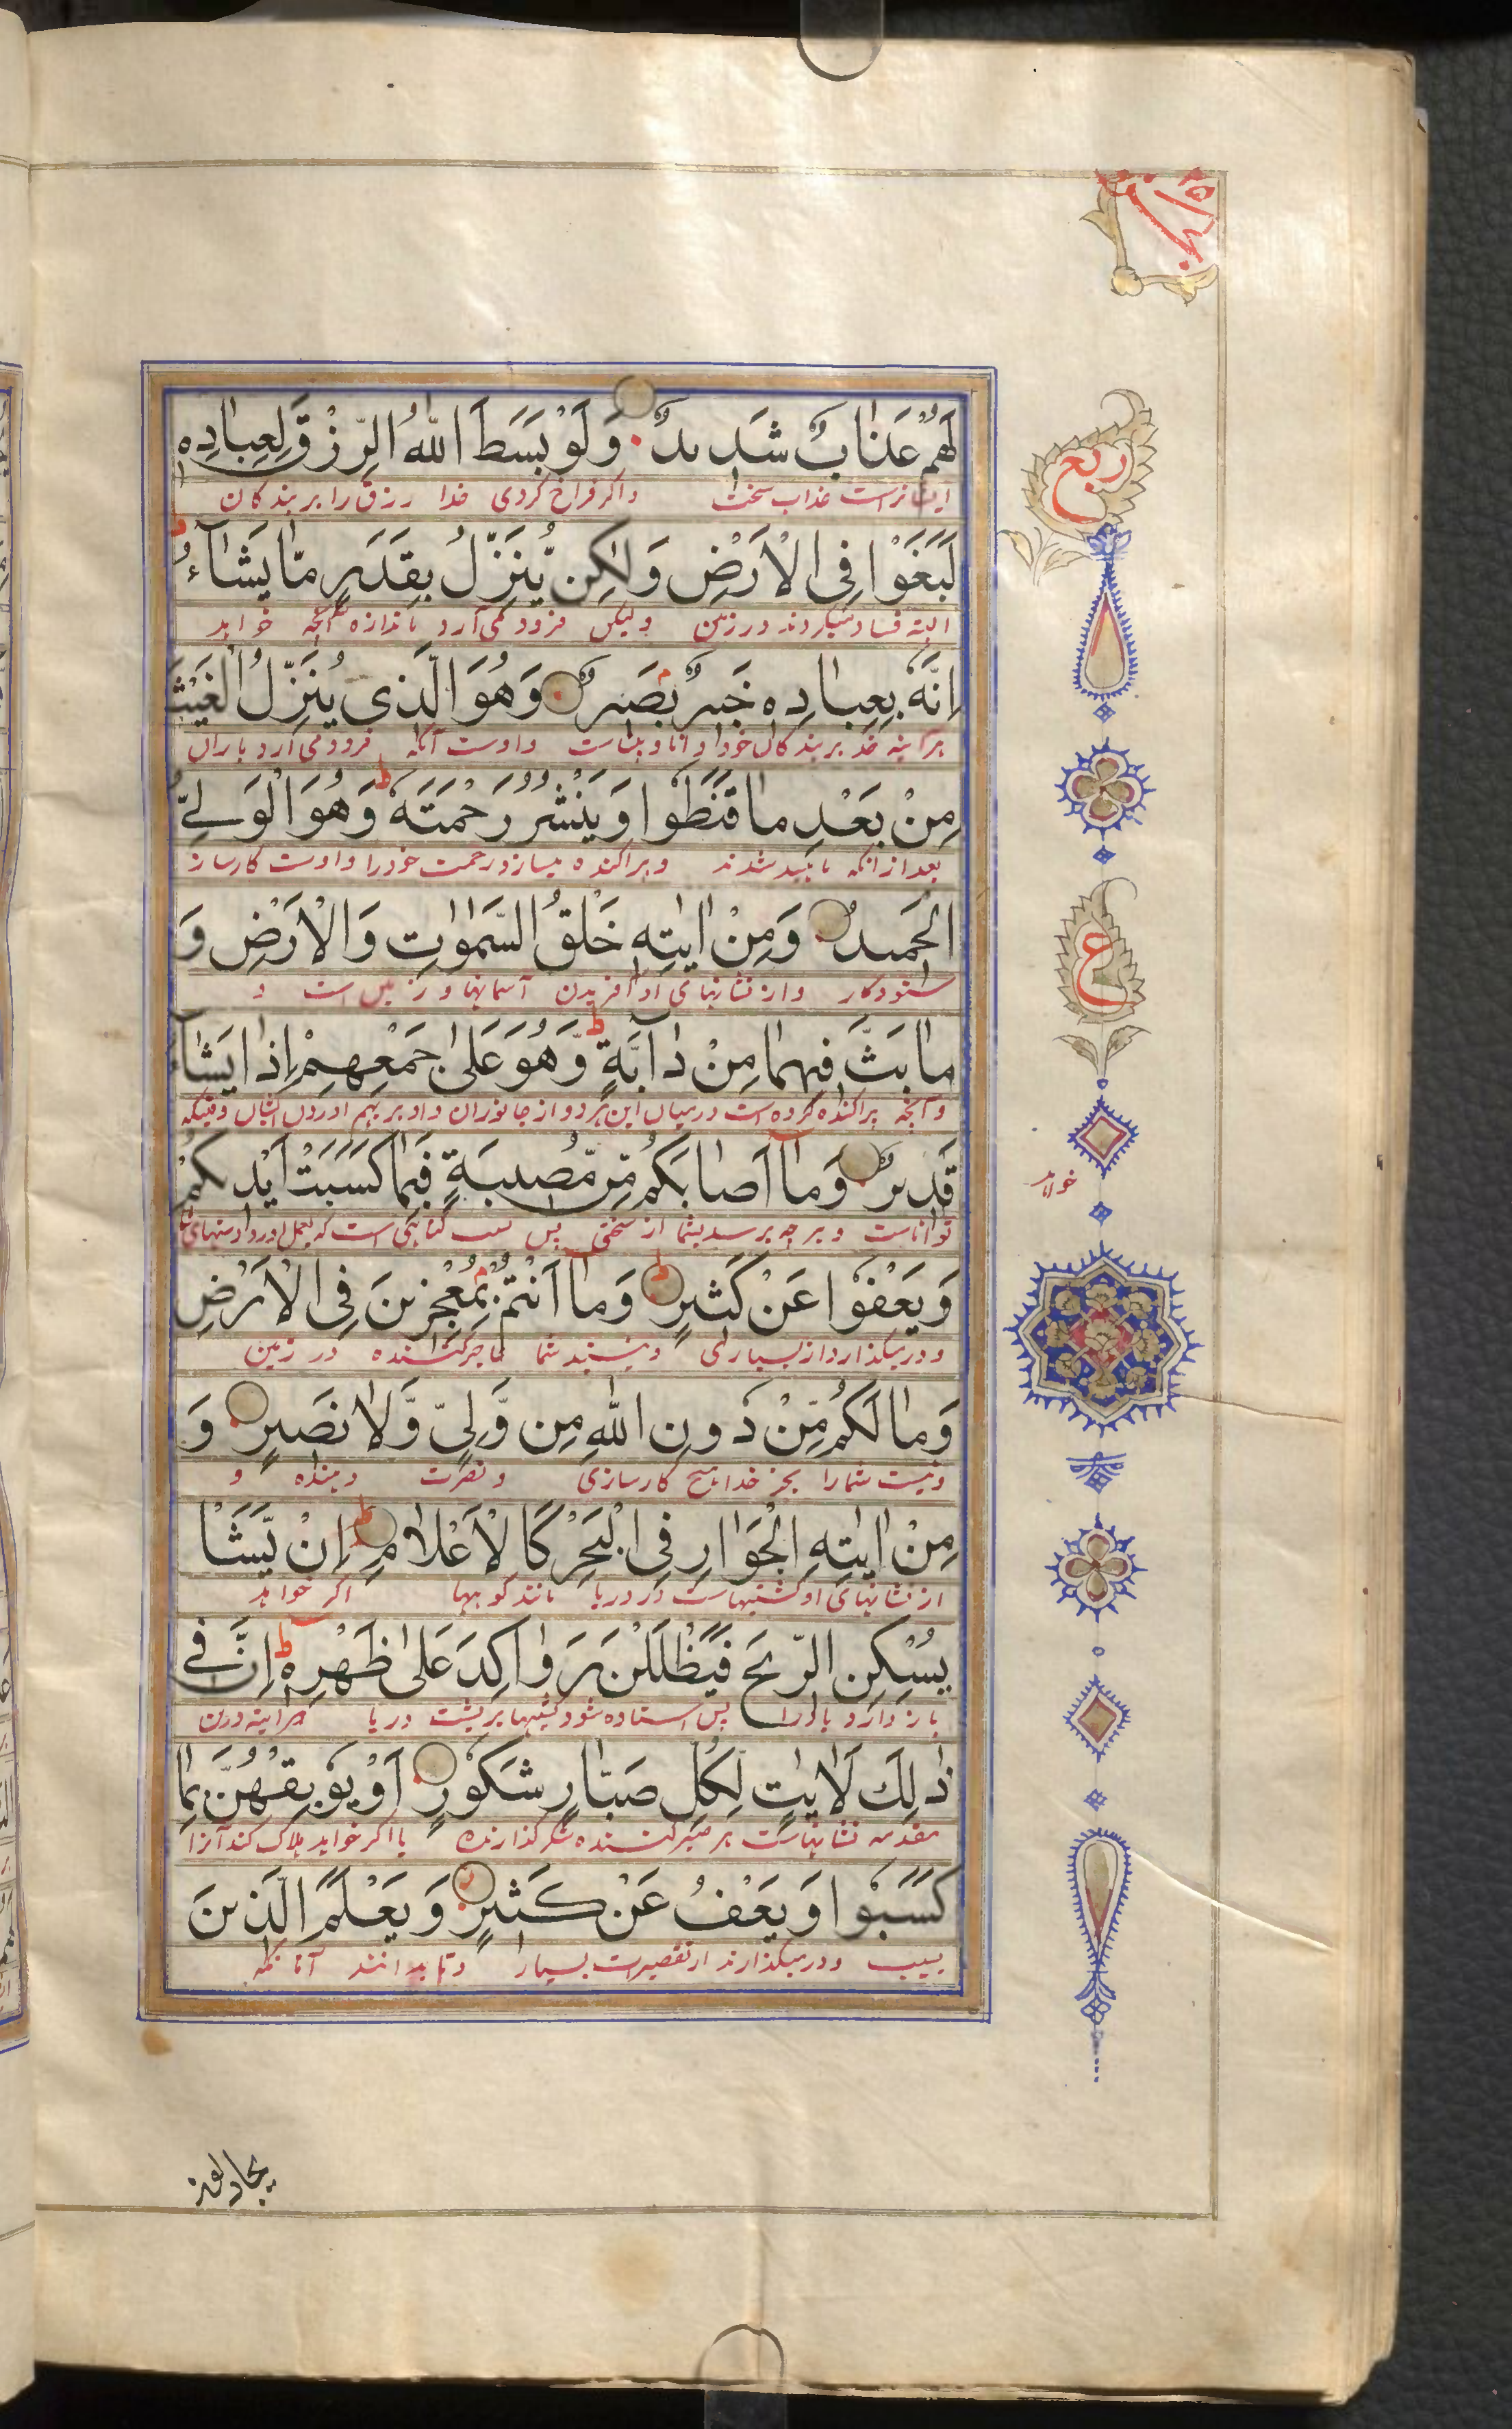 الجزء ٢٥
لَهُمْ عَذَابٌ شَدِیدٌ وَلَوْ بَسَطَ اللّٰهُ الرِّزْقَ لِعِبَادِهٖ
ربع
ایشانراست عذاب سخت واکر فراخ کردی خدا رزق را بر بندکان
لَبَغَوْا فِی الْاَرْضِ وَلٰکِنْ یُّنَزِّلُ بِقَدَرٍ مَّا یَشَآءُ
البته فساد میکردند در زمین ولیکن فرود می آرد باندازه آنچه خواهد
اِنَّهٗ بِعِبَادِهٖ خَبِیرٌ بَصِیرٌ وَهُوَ الَّذِی یُنَزِّلُ الْغَیْثَ
هرآینه خدا بر بندکان خود دانا و بیناست و اوست آنکه فرود می آرد باران
مِنْ بَعْدِ مَا قَنَطُوا وَیَنْشُرُ رَحْمَتَهٗ وَهُوَ الْوَلِیُّ
بعد از انکه ناامید شدند و پراکنده میسازد رحمت خود را و اوست کارساز
الْحَمِیدُ وَمِنْ اٰیٰتِهٖ خَلْقُ السَّمٰوٰتِ وَالْاَرْضِ وَ
ستودکار و از نشانهای او آفریدن آسمانها و زمین است و
ع
مَا بَثَّ فِیهِمَا مِنْ دَآبَّةٍ وَّهُوَ عَلٰی جَمْعِهِمْ اِذَا یَشَآءُ
و آنچه پراکنده کرده است درمیان این هردو از جانوران و او بر بهم اوردن ایشان وقتیکه
خواهد
قَدِیرٌ وَمَا اَصَابَکُمْ مِّنْ مُّصِیبَةٍ فَبِمَا کَسَبَتْ اَیْدِیکُمْ
تواناست و هرچه برسد بشما از سختی پس بسبب کناهی است که بعمل اورد دستهای شما
وَیَعْفُوا عَنْ کَثِیرٍ وَمَا اَنْتُمْ بِمُعْجِزِینَ فِی الْاَرْضِ
و درمیکذارد از بسیاری و نیستید شما عاجز کننده در زمین
وَمَا لَکُمْ مِّنْ دُونِ اللّٰهِ مِنْ وَّلِیٍّ وَّلَا نَصِیرٍ وَ
و نیست شما را بجز خدا هیچ کارسازی و نصرت دهنده و
مِنْ اٰیٰتِهِ الْجَوَارِ فِی الْبَحْرِ کَالْاَعْلَامِ اِنْ یَّشَا
از نشانهای او کشتیهاست در دریا مانند کوهها اکر خواهد
یُسْکِنِ الرِّیحَ فَیَظْلَلْنَ رَوَاکِدَ عَلٰی ظَهْرِهٖ اِنَّ فِی
باز دارد باد را پس استاده شود کشتیها بر پشت دریا هرآینه درین
ذٰلِكَ لَاٰیٰتٍ لِکُلِّ صَبَّارٍ شَکُورٍ اَوْ یُوبِقْهُنَّ بِمَا
مقدمه نشانهاست هر صبر کننده شکر گذارنده یا اکر خواهد هلاک کند آنرا
کَسَبُوا وَیَعْفُ عَنْ کَثِیرٍ وَیَعْلَمَ الَّذِینَ
بسبب و درمیکذارند از تقصیرات بسیار و تا بدانند آنانکه
یجادلون